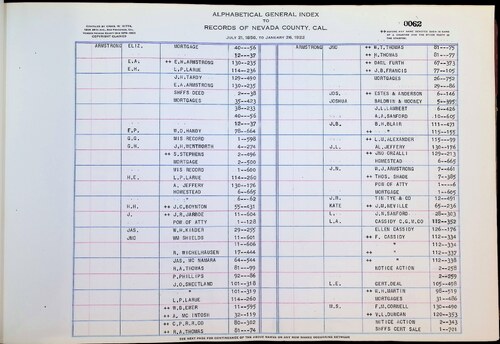 ALPHABETICAL GENERAL INDEX
TO
RECORDS OF NEVADA COUNTY, CAL.
JULY 21, 1856, TO JANUARY 28, 1922
0062
COPYRIGHT QUARTER
ARMSTRONG ELIZ. MORTGAGE 40--56
" 32--37
E.A. ++ E.H. ARMSTRONG 130--235
E.H. L.P. LARUE 114--236
J.H. TARDY 129--490
E.A. ARMSTRONG 130--235
SHFFS DEED 2--38
MORTGAGES 35--423
38--233
40--56
32--37
F.P. M.D. HARDY 78--604
G.G. MIS RECORD 1--598
G.H. J.H. WENTWORTH 44--274
++ S. STEPHENS 2--496
MORTGAGE 2--500
MIS RECORD 1--600
H.E. L.P. LARUE 114--260
A. JEFFERY 130--176
HOMESTEAD 6--665
" 6--62
H.H. ++ J.C. BOYNTON 55--431
J. ++ J.R. JARBOE 11--604
POW OF ATTY 1--128
JAS. W.H. KINDER 29--255
JNO WM SHIELDS 11--601
11--606
R. MICHELHAUSEN 17--444
JAS. MC NAMARA 64--544
H.A. THOMAS 81--77
P. PHILLIPS 92--86
J.O. SWEETLAND 101--318
" 101--319
L.P. LARUE 114--260
++ W.B. EWER 11--595
++ A. MC INTOSH 32--119
++ C.P.R.R.CO 80--302
++ H.A. THOMAS 81--74
ARMSTRONG JNO ++ W.T. THOMAS 81--75
++ H. THOMAS 81--77
++ CARL FURTH 67--373
++ J.B. FRANCIS 77--105
MORTGAGES 26--752
29--86
JOS. ++ ESTES & ANDERSON 6--146
JOSHUA BALDWIN & HOCKEY 5--395
6--426
A.A. SANFORD 10--605
J.B. B.H. BLAIR 111--471
++ " 115--155
++ L.D. ALEXANDER 115--99
J.L. AL. JEFFERY 130--176
++ JNO GRIZALLI 129--213
HOMESTEAD 6--665
J.N. B.J. ARMSTRONG 7--461
++ THOS. SHADE 7--385
POW OF ATTY 1--6
MORTGAGE 1--605
J.R. TIE TYE & CO 12--491
KATE ++ J.H. NEVILLE 65--236
L. J.H. SANFORD 28--303
L.A. CASSIDY C.G.M.CO 112--352
ELLEN CASSIDY 126--176
++ F. CASSIDY 112--334
++ " 112--334
++ " 112--337
++ " 112--338
NOTICE ACTION 2--258
2--259
L.E. CERT. DEAL 105--498
++ W.H. MARTIN 98--519
MORTGAGES 31--486
M.B. F.G. CORNELL 130--490
++ V.L. DUNCAN 120--353
NOTICE ACTION 2--343
SHFFS CERT SALE 1--701
SEE NEXT PAGE FOR CONTINUANCE OF THE ABOVE NAMES OR ANY NEW NAMES BEGINNING BETWEEN